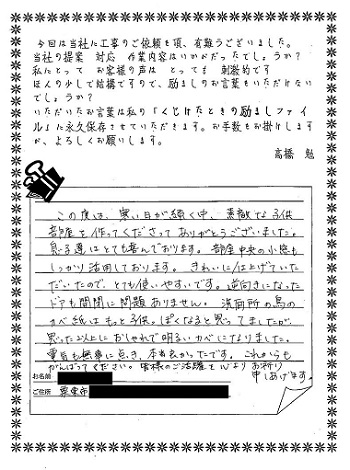 今回は当社に工事のご依頼を頂、有難うございました。
当社の提案 対応 作業内容はいかがだったでしょうか?
私にとって お客様の声は とっても 刺激的です
ほんの少しで結構ですので、励ましのお言葉をいただけない
でしょうか?
いただいたお言葉は私の「くじけたときの励ましファイ
ル」に永久保存させていただきます。お手数をお掛けします
が、よろしくお願いします。
高橋 勉
この度は、暑い日が続く中、素敵な子供
部屋を作ってくださってありがとうございました。
息子達はとても喜んでおります。部屋中央の小窓も
しっかり活用しております。きれいに仕上げていた
だいたので、とても使いやすいです。逆向きになった
ドアも開閉に問題ありません。洗面所の鳥の
かべ紙はもっと子供っぽくなると思ってましたが、
思った以上におしゃれで明るいカベになりました。
電気も無事に点き、本当良かったです。これからも
がんばってください。皆様のご活躍を心よりお祈り
申しあげます。
お名前
ご住所 栗東市